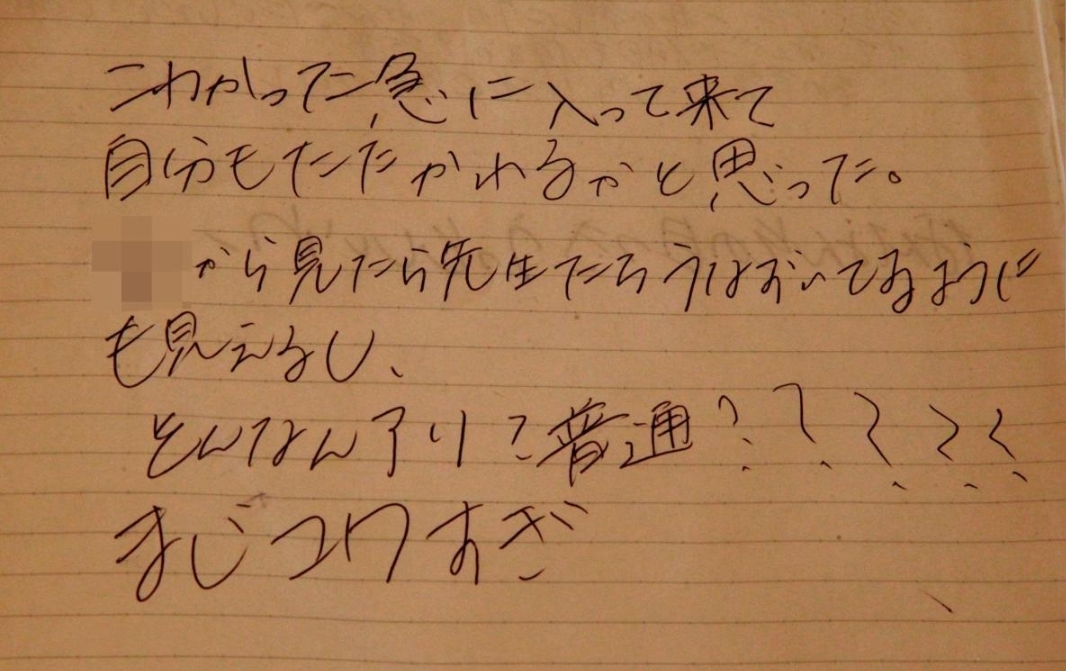 こわかった急に入って来て
自分もたたかれるかと思った。
から見たら先生たちうばおいてるように
も見えるし、
そんなんアリ？普通？？？？？
まじコワすぎ